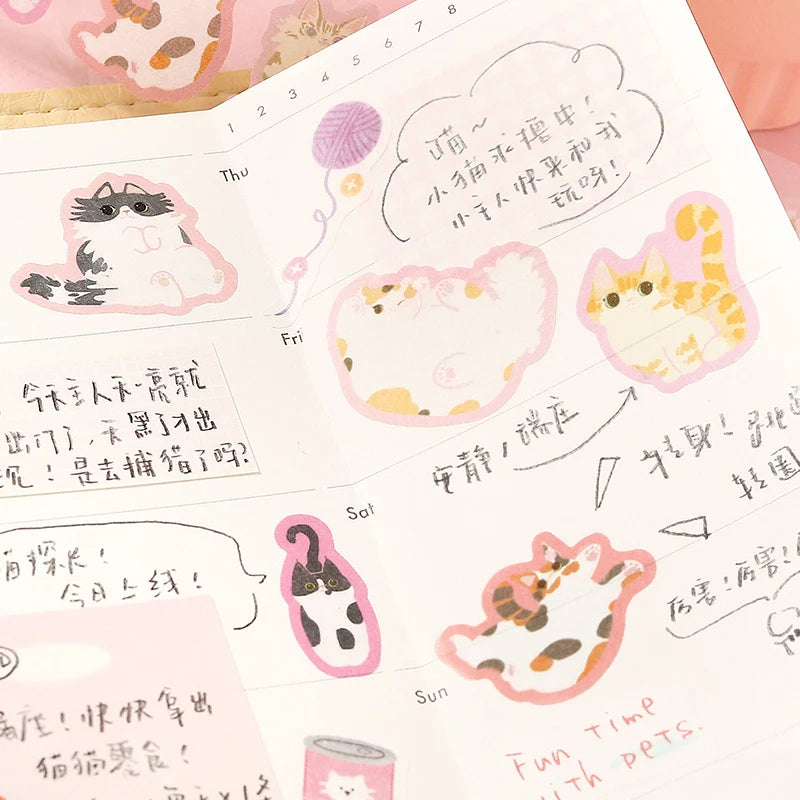 1 2 3 4 5 6 7 8
Thu
喵~
小猫求撸中!
小主人快来和我
玩呀!
Fri
今天主人天一亮就
出门了,天黑了才出
现!是去捕猎了呀?
安静!端庄
转身!
转圈
Sat
猫探长!
今日上线!
厉害!厉害!
快快拿出
猫猫零食!
Sun
Fun time
with pets.